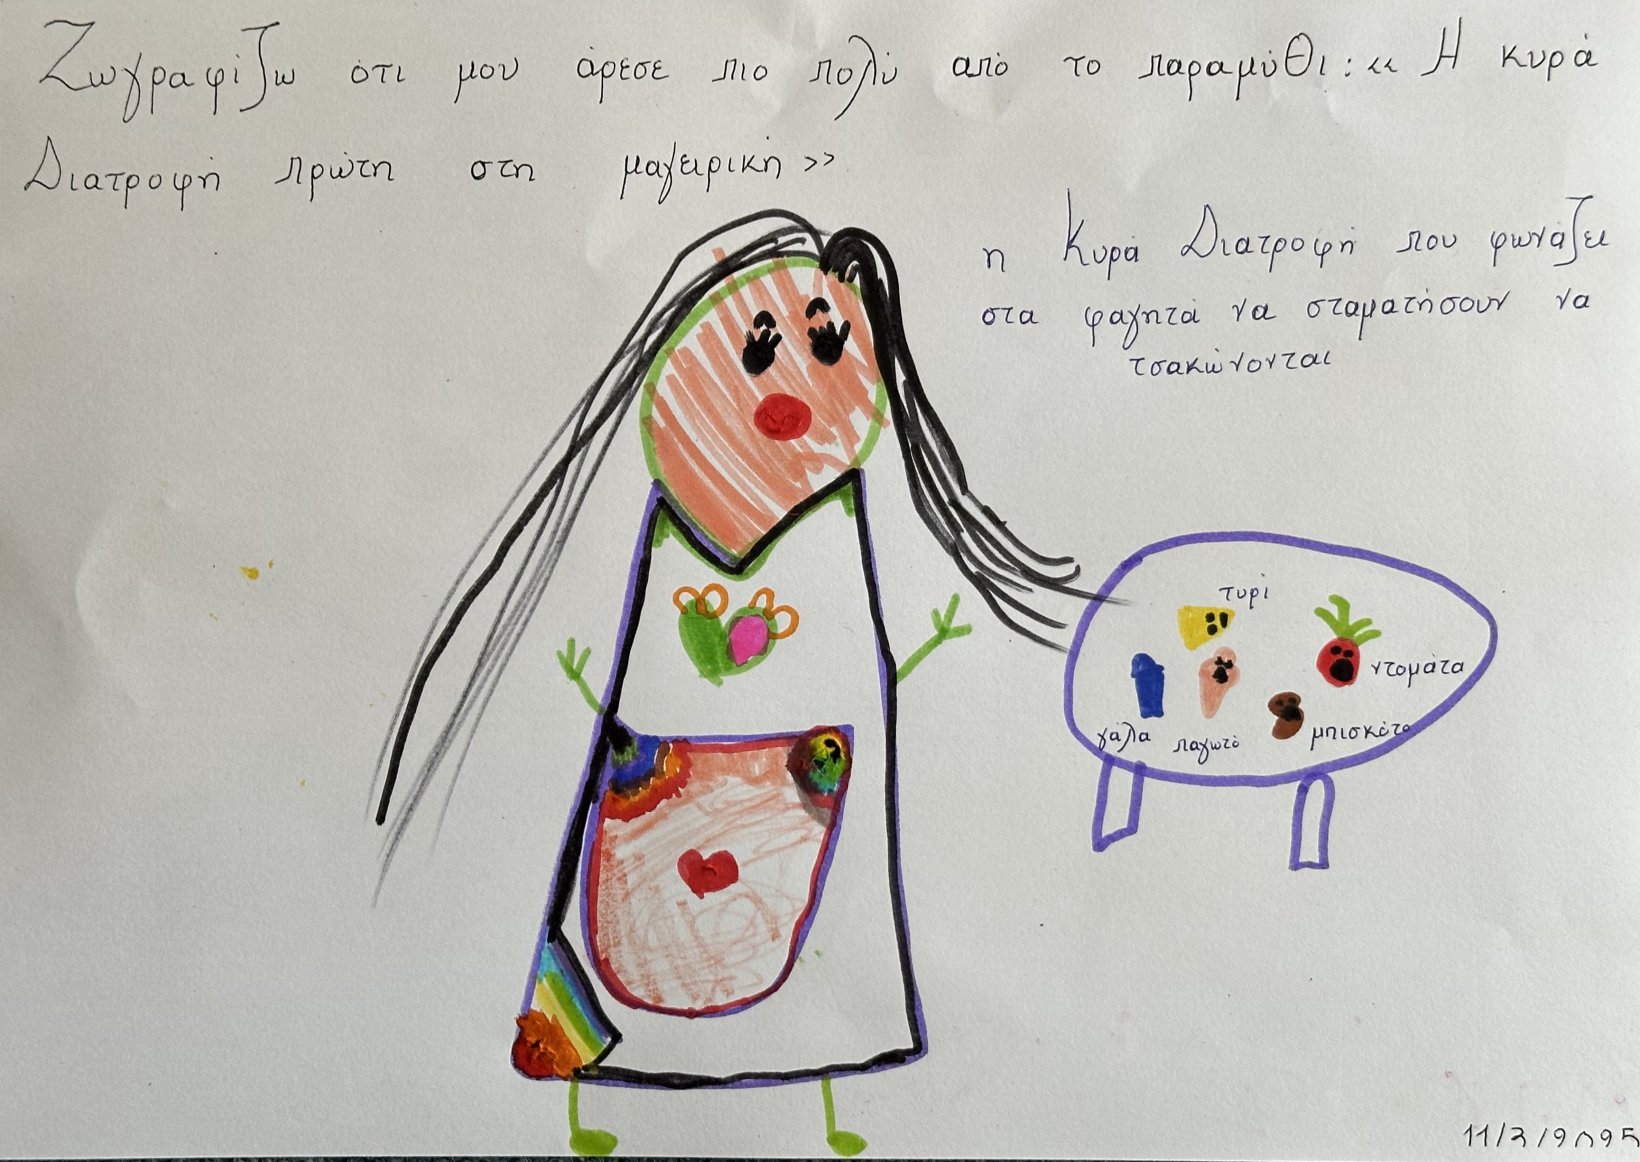 Ζωγραφίζω ότι μου άρεσε πιο πολύ από το παραμύθι: «Η κυρά
Διατροφή πρώτη στη μαγειρική»
η Κυρά Διατροφή που φωνάζει
στα φαγητά να σταματήσουν να
τσακώνονται
τυρί
ντομάτα
γάλα
παγωτό
μπισκότο